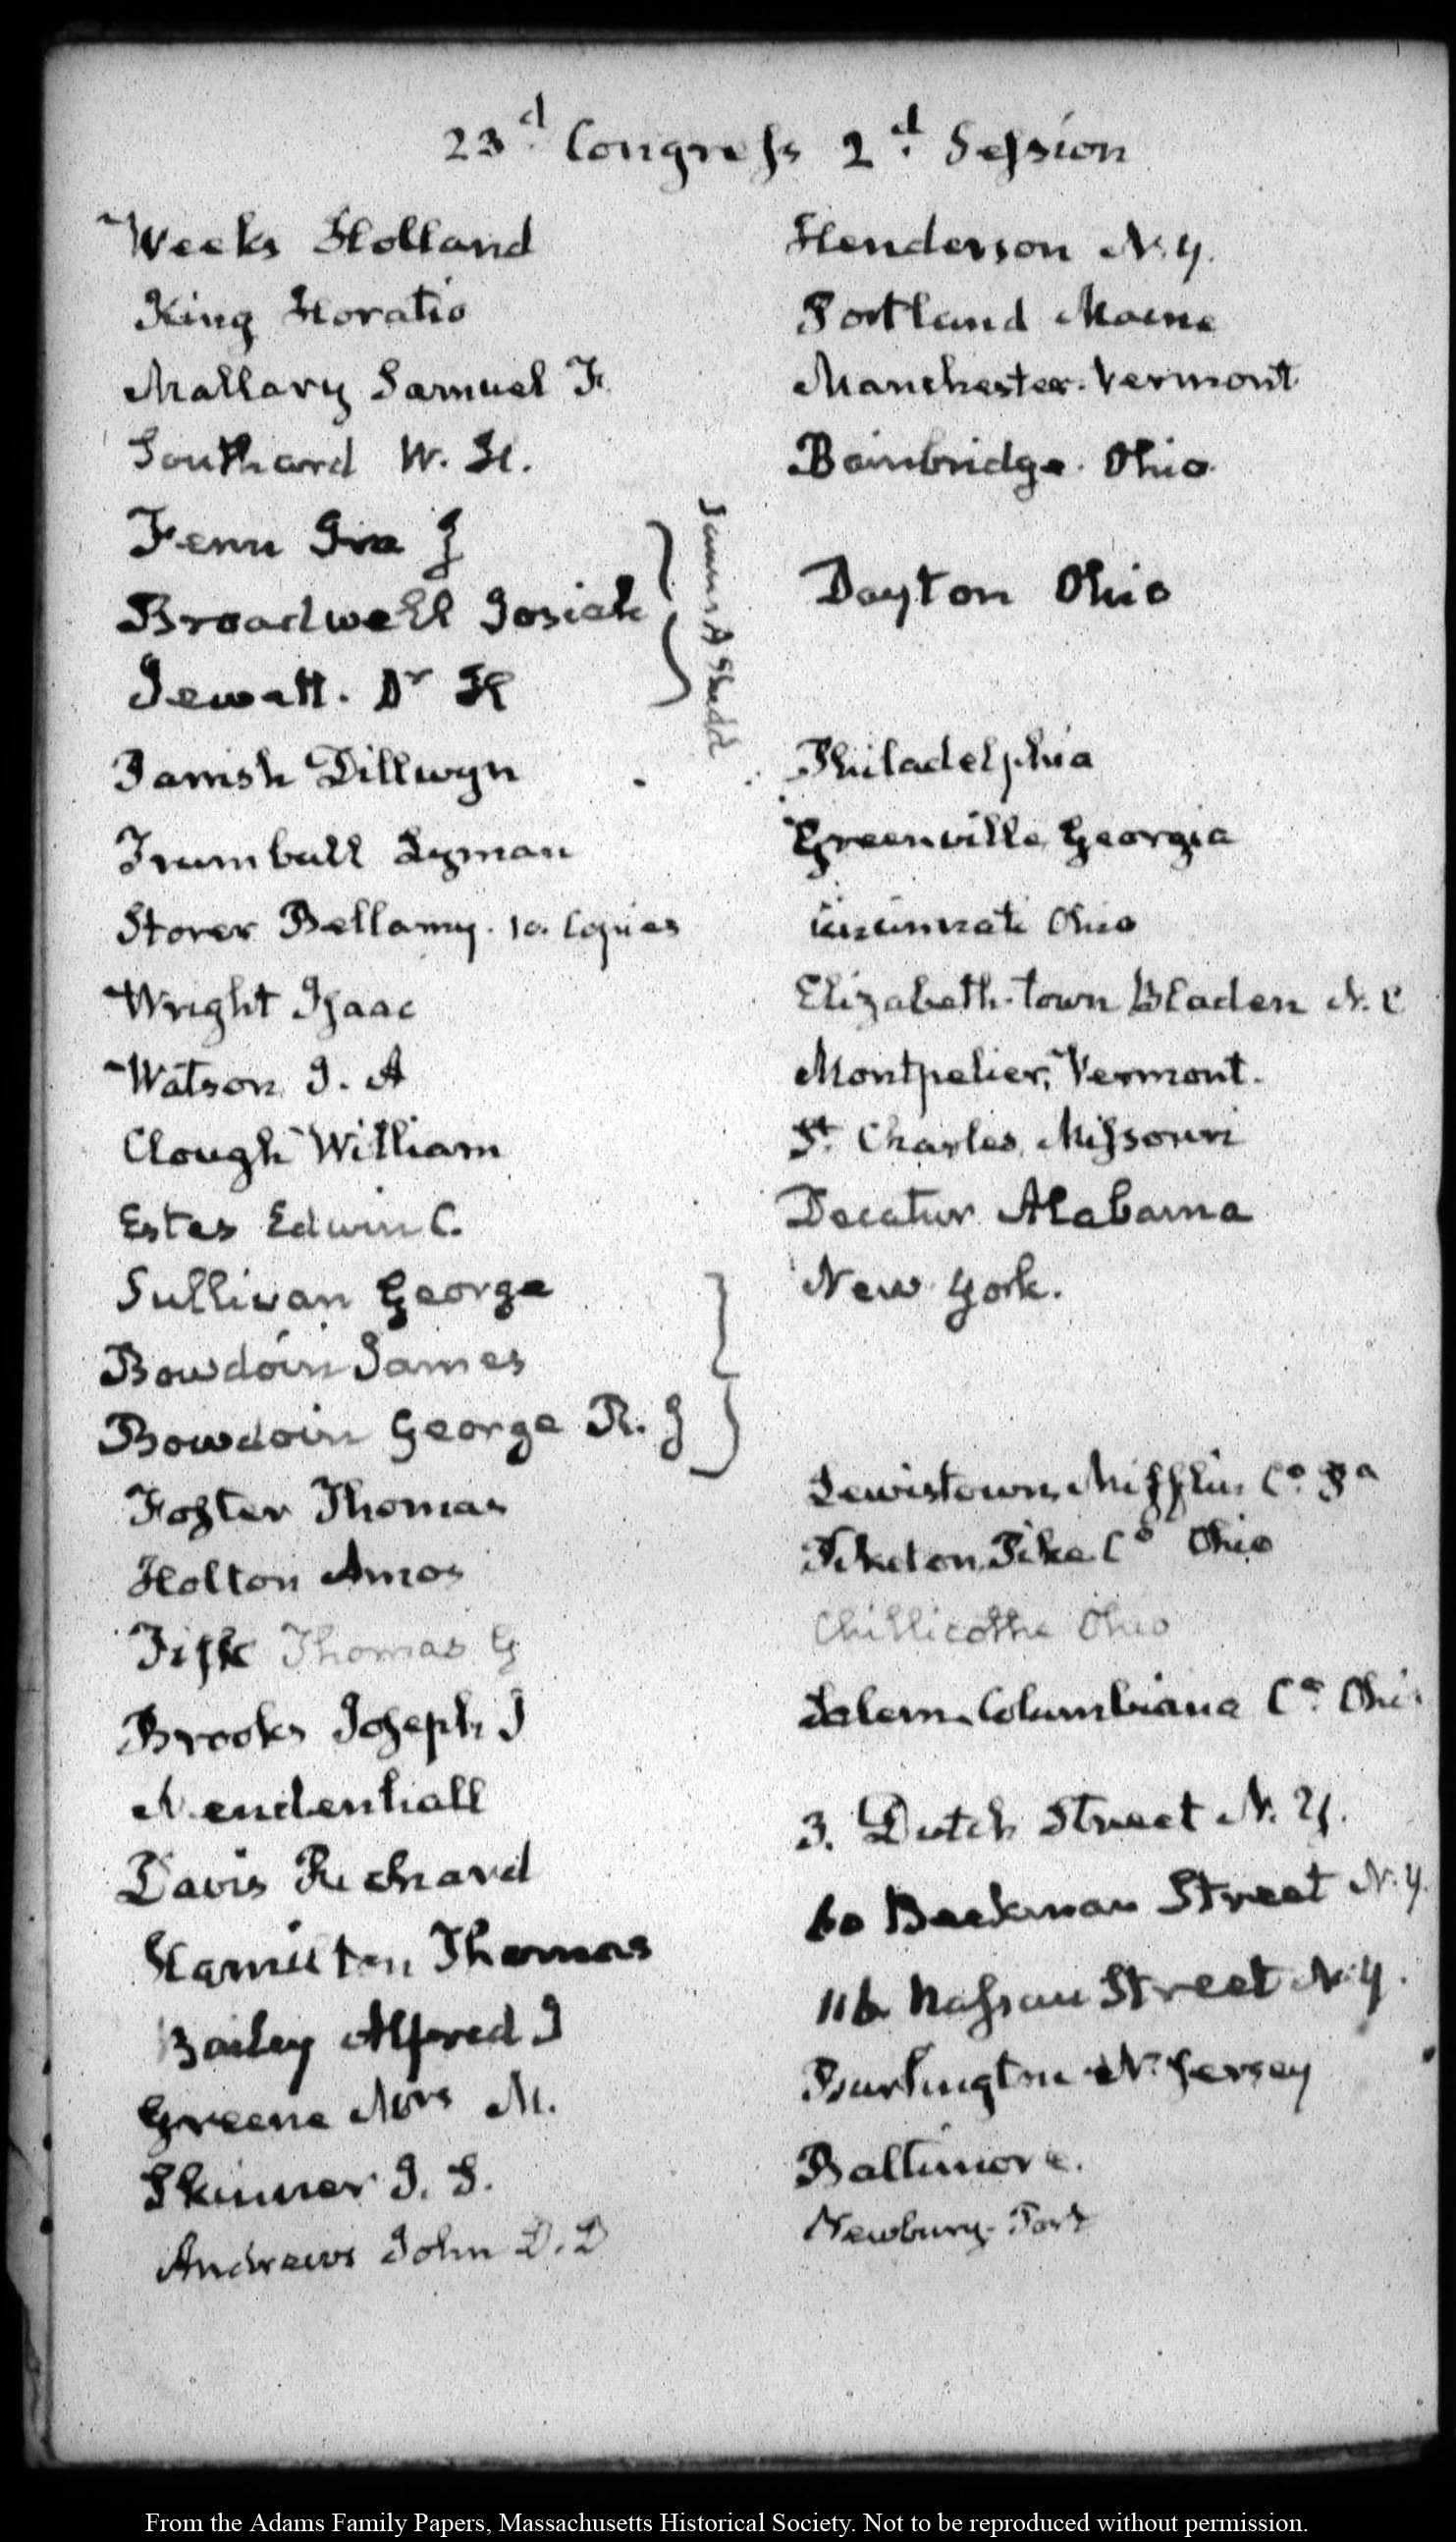 23d. Congress 2d. Session
Weeks Holland Henderson N. Y.
King Horatio Portland Maine
Mallary Samuel F. Manchester. Vermont
Southard W. H. Bainbridge. Ohio.
Fenn Ira J
James A Shedd
Dayton Ohio
Broadwell Josiah
Jewatt. Dr H
Parrish Dillwyn Philadelphia
Trumbull Lyman Greenville, Georgia
Storer Bellamy. 10. Copies Cincinnati Ohio
Wright Isaac Elizabeth-town Bladen N. C
Watson J. A Montpelier, Vermont.
Clough William St. Charles, Missouri
Estes Edwin C. Decatur Alabama
Sullivan George New York.
Bowdoin James
Bowdoin George R. J
Foster Thomas Lewistown, Mifflin Co. Pa
Holton Amos Piketon, Pike Co Ohio
Fisk Thomas G Chillicothe Ohio
Brooks Joseph J Salem, Columbiana Co. Ohio
Mendenhall
Davis Richard 3. Dutch Street N. Y.
Hamilton Thomas 60 Beekman Street N. Y.
Bailey Alfred J 116 Nassau Street N. Y.
Greene Mrs M. Burlington N. Jersey
Skinner J. S. Baltimore.
Andrews John D. D Newbury-Port
From the Adams Family Papers, Massachusetts Historical Society. Not to be reproduced without permission.